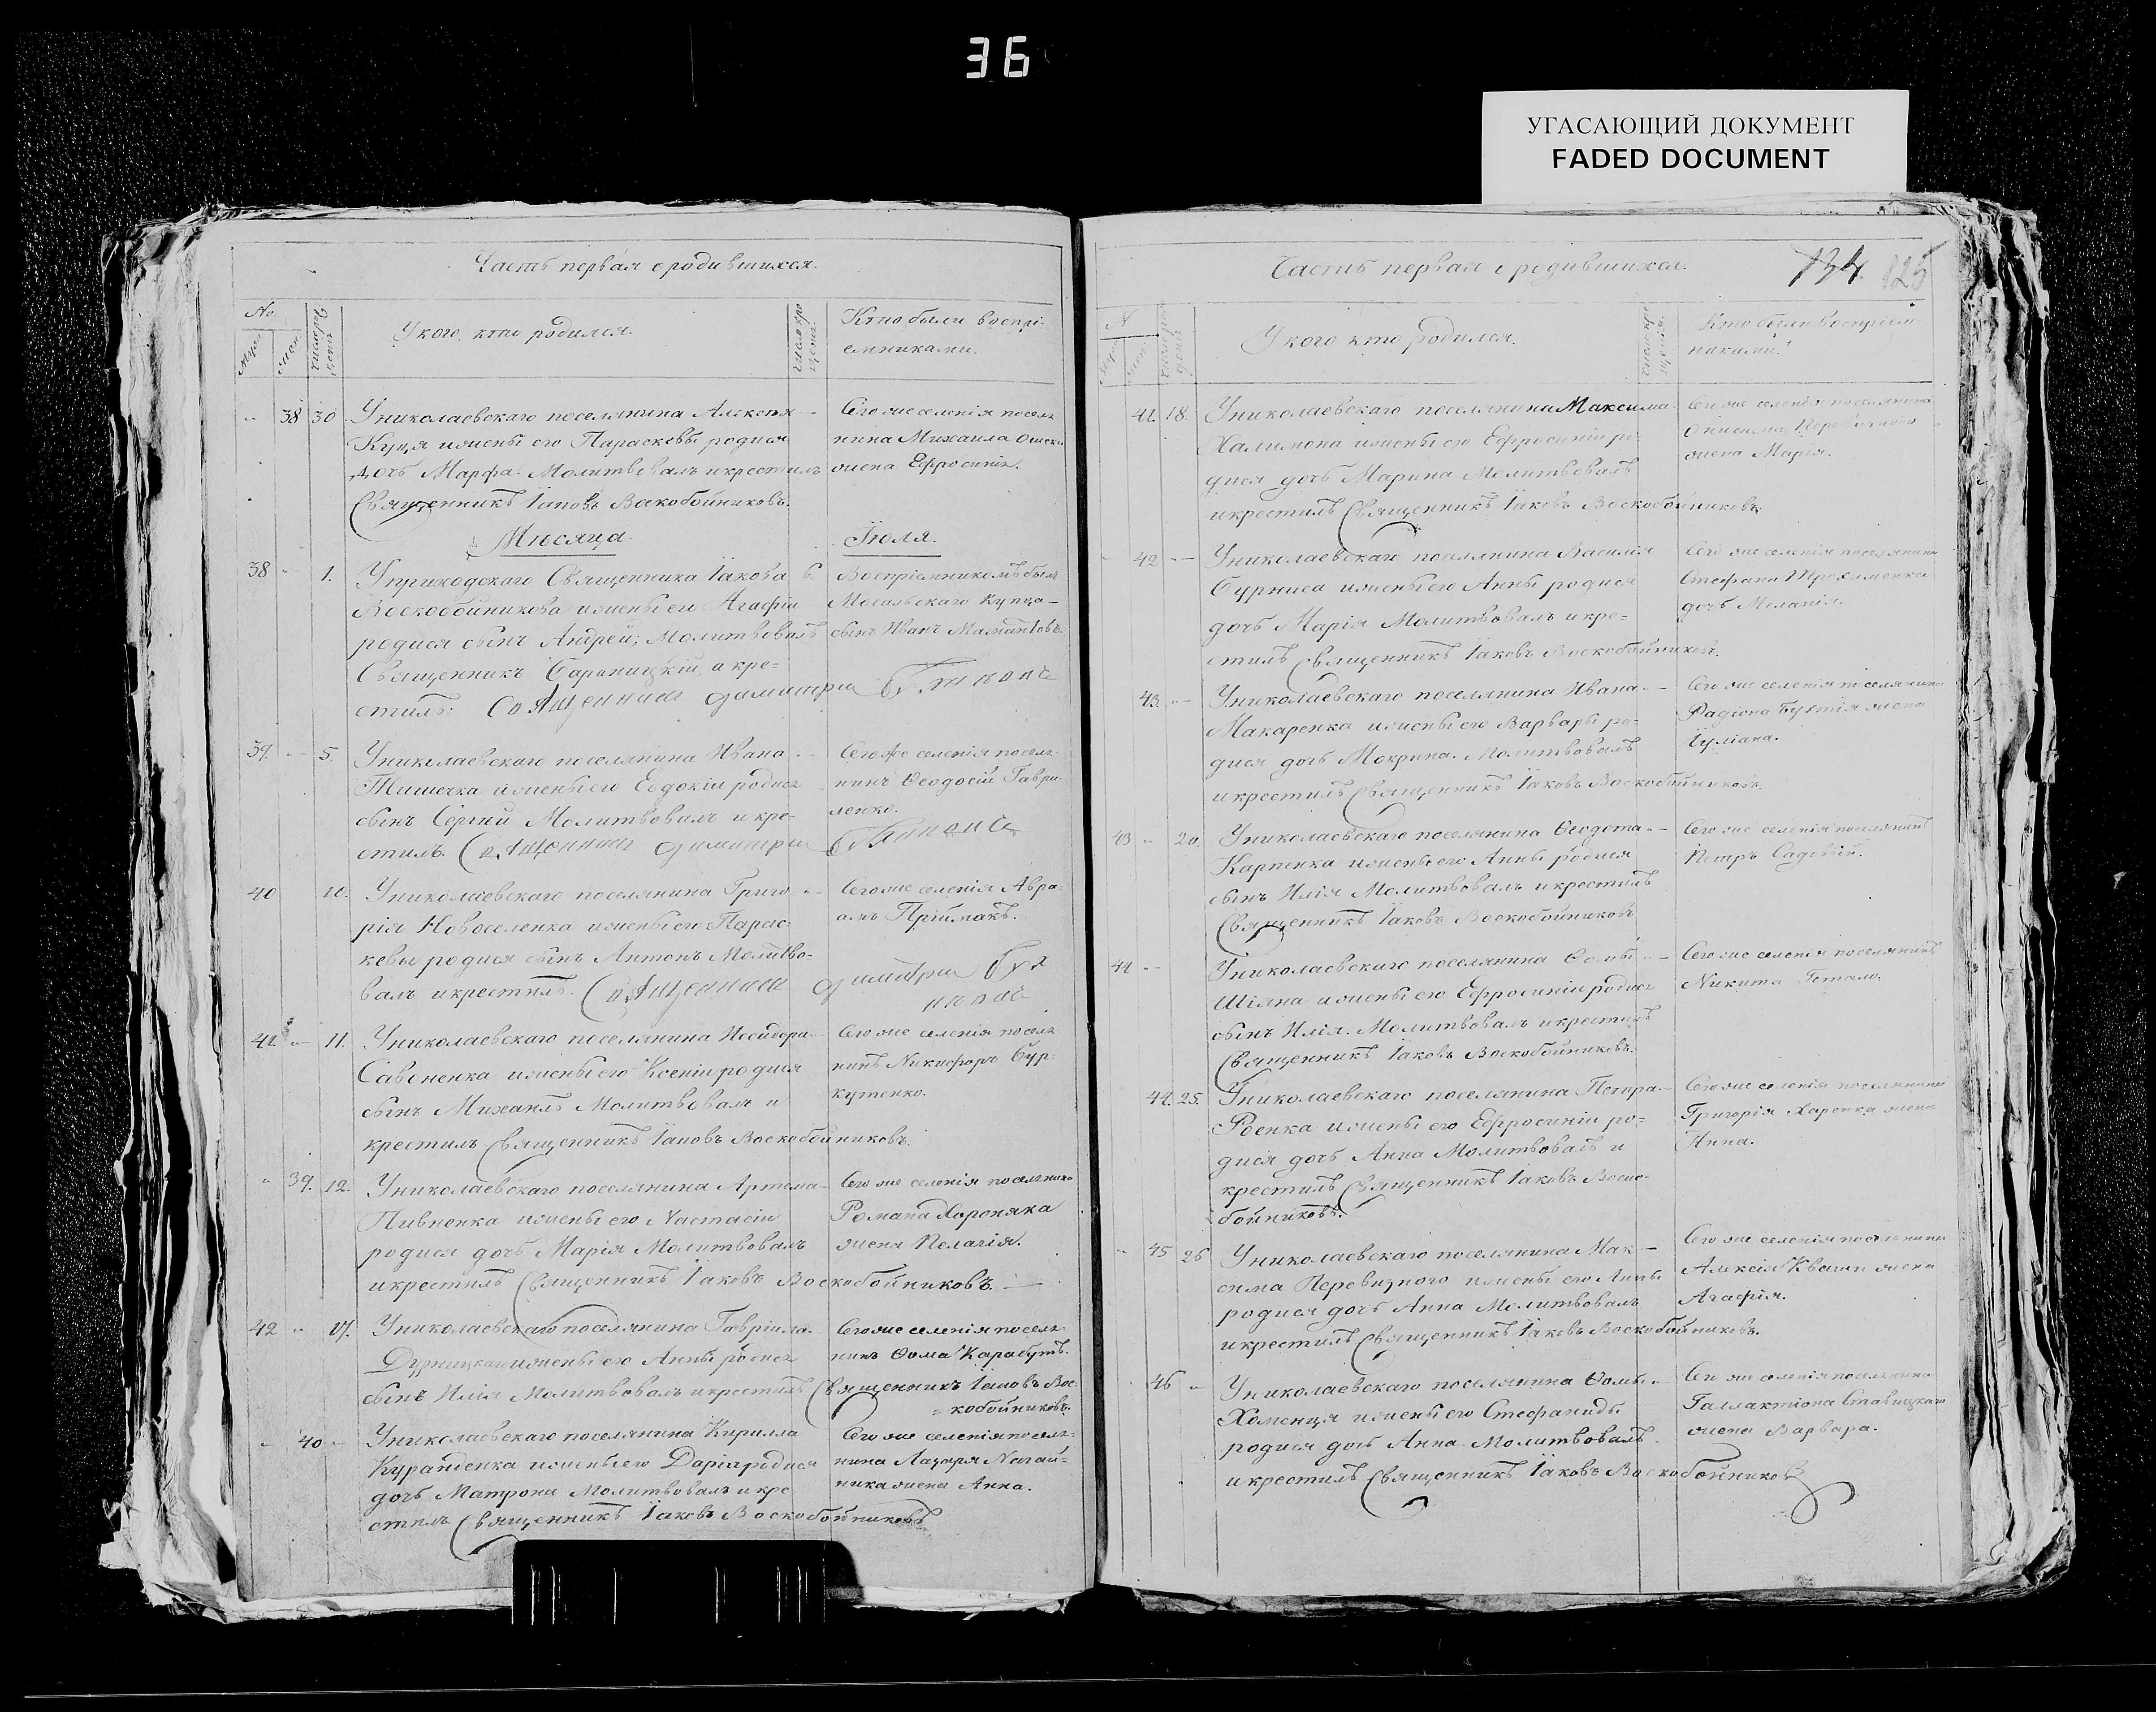 36
УГАСАЮЩИЙ ДОКУМЕНТ
FADED DOCUMENT
Часть первая о родившихся.
No.
У кого, кто родился.
Кто были воспрі-
емниками.
38 30 У николаевскаго поселянина Алексѣя
Куця и жены его Параскевы родися
дочь Марфа. Молитвовалъ и крестилъ
Священникъ Іаковъ Воскобойниковъ.
Сего же селенія поселя
нина Михаила
жена Ефросинія.
Мѣсяца Іюля.
38 1. У приходскаго Священника Іакова 6.
Воскобойникова и жены его Агафіи
родися сынъ Андрей; Молитвовалъ
Священникъ а кре-
стилъ: Священникъ Димитрій
Воспріемникомъ былъ
Мосальскаго купца
сынъ Иванъ Мамантовъ.
39. 5. У николаевскаго поселянина Ивана
и жены его Евдокіи родися
сынъ Сергій Молитвовалъ и кре-
стилъ. Священникъ Димитрій
Сего же селенія поселя-
нинъ Ѳеодосій Гаври-
ленко.
40 10. У николаевскаго поселянина Григо-
рія Новоселенка и жены его Парас-
кевы родися сынъ Антонъ Молитво-
валъ и крестилъ. Священникъ Димитрій
Сего же селенія Авра-
амъ Пріймакъ.
41. 11. У николаевскаго поселянина Исидора
Савоненка и жены его Ксеніи родися
сынъ Михаилъ Молитвовалъ и
крестилъ Священникъ Іаковъ Воскобойниковъ.
Сего же селенія поселя
нинъ Никифоръ Бур-
кутенко.
39. 12. У николаевскаго поселянина Артема
Пивненка и жены его Настасіи
родися дочь Марія Молитвовалъ
и крестилъ Священникъ Іаковъ Воскобойниковъ.
Сего же селенія поселянина
Романа
жена Пелагія.
42 17. У николаевскаго поселянина Гавріила
и жены его Анны родися
сынъ Илія Молитвовалъ и крестилъ Священникъ Іаковъ Вос-
кобойниковъ.
Сего же селенія поселя-
нинъ Ѳома Карабутъ.
40 У николаевскаго поселянина Кирилла
и жены его Даріи родися
дочь Матрона Молитвовалъ и кре
стилъ Священникъ Іаковъ Воскобойниковъ
Сего же селенія поселя-
нина Лазаря Нагай-
ника жена Анна.
Часть первая о родившихся.
134 125
У кого кто родился.
Кто были воспріем
никами.
41. 18. У николаевскаго поселянина Максима
Халимона и жены его Ефросиніи ро-
дися дочь Марина Молитвовалъ
и крестилъ Священникъ Іаковъ Воскобойниковъ.
Сего же селенія поселянина
Онисима
жена Марія.
42 У николаевскаго поселянина Василія
и жены его Анны родися
дочь Марія Молитвовалъ и кре-
стилъ Священникъ Іаковъ Воскобойниковъ.
Сего же селенія поселянина
Стефана Трохименка
дочь Меланія.
43. У николаевскаго поселянина Ивана
Макаренка и жены его Варвары ро-
дися дочь Мокрина. Молитвовалъ
и крестилъ Священникъ Іаковъ Воскобойниковъ.
Сего же селенія поселянина
Радіона жена
Іуліана.
43 20. У николаевскаго поселянина Ѳеодота
Карпенка и жены его Анны родися
сынъ Илія Молитвовалъ и крестилъ
Священникъ Іаковъ Воскобойниковъ
Сего же селенія поселянинъ
Петръ Садовій.
44 У николаевскаго поселянина Ѳомы
Шіяна и жены его Ефросиніи родися
сынъ Илія. Молитвовалъ и крестилъ
Священникъ Іаковъ Воскобойниковъ.
Сего же селенія поселянинъ
Никита
44. 25. У николаевскаго поселянина Петра
Роенка и жены его Ефросиніи ро-
дися дочь Анна Молитвовалъ и
крестилъ Священникъ Іаковъ Воско-
бойниковъ.
Сего же селенія поселянина
Григорія Харенка жена
Анна.
45 26 У николаевскаго поселянина Мак-
сима Перевизного и жены его Анны
родися дочь Анна Молитвовалъ
и крестилъ Священникъ Іаковъ Воскобойниковъ.
Сего же селенія поселянина
Алексія Кваши жена
Агафія.
46 У николаевскаго поселянина Ѳомы
Хоменця и жены его Стефаниды
родися дочь Анна. Молитвовалъ
и крестилъ Священникъ Іаковъ Воскобойниковъ
Сего же селенія поселянина
Галлактіона Ставицкаго
жена Варвара.